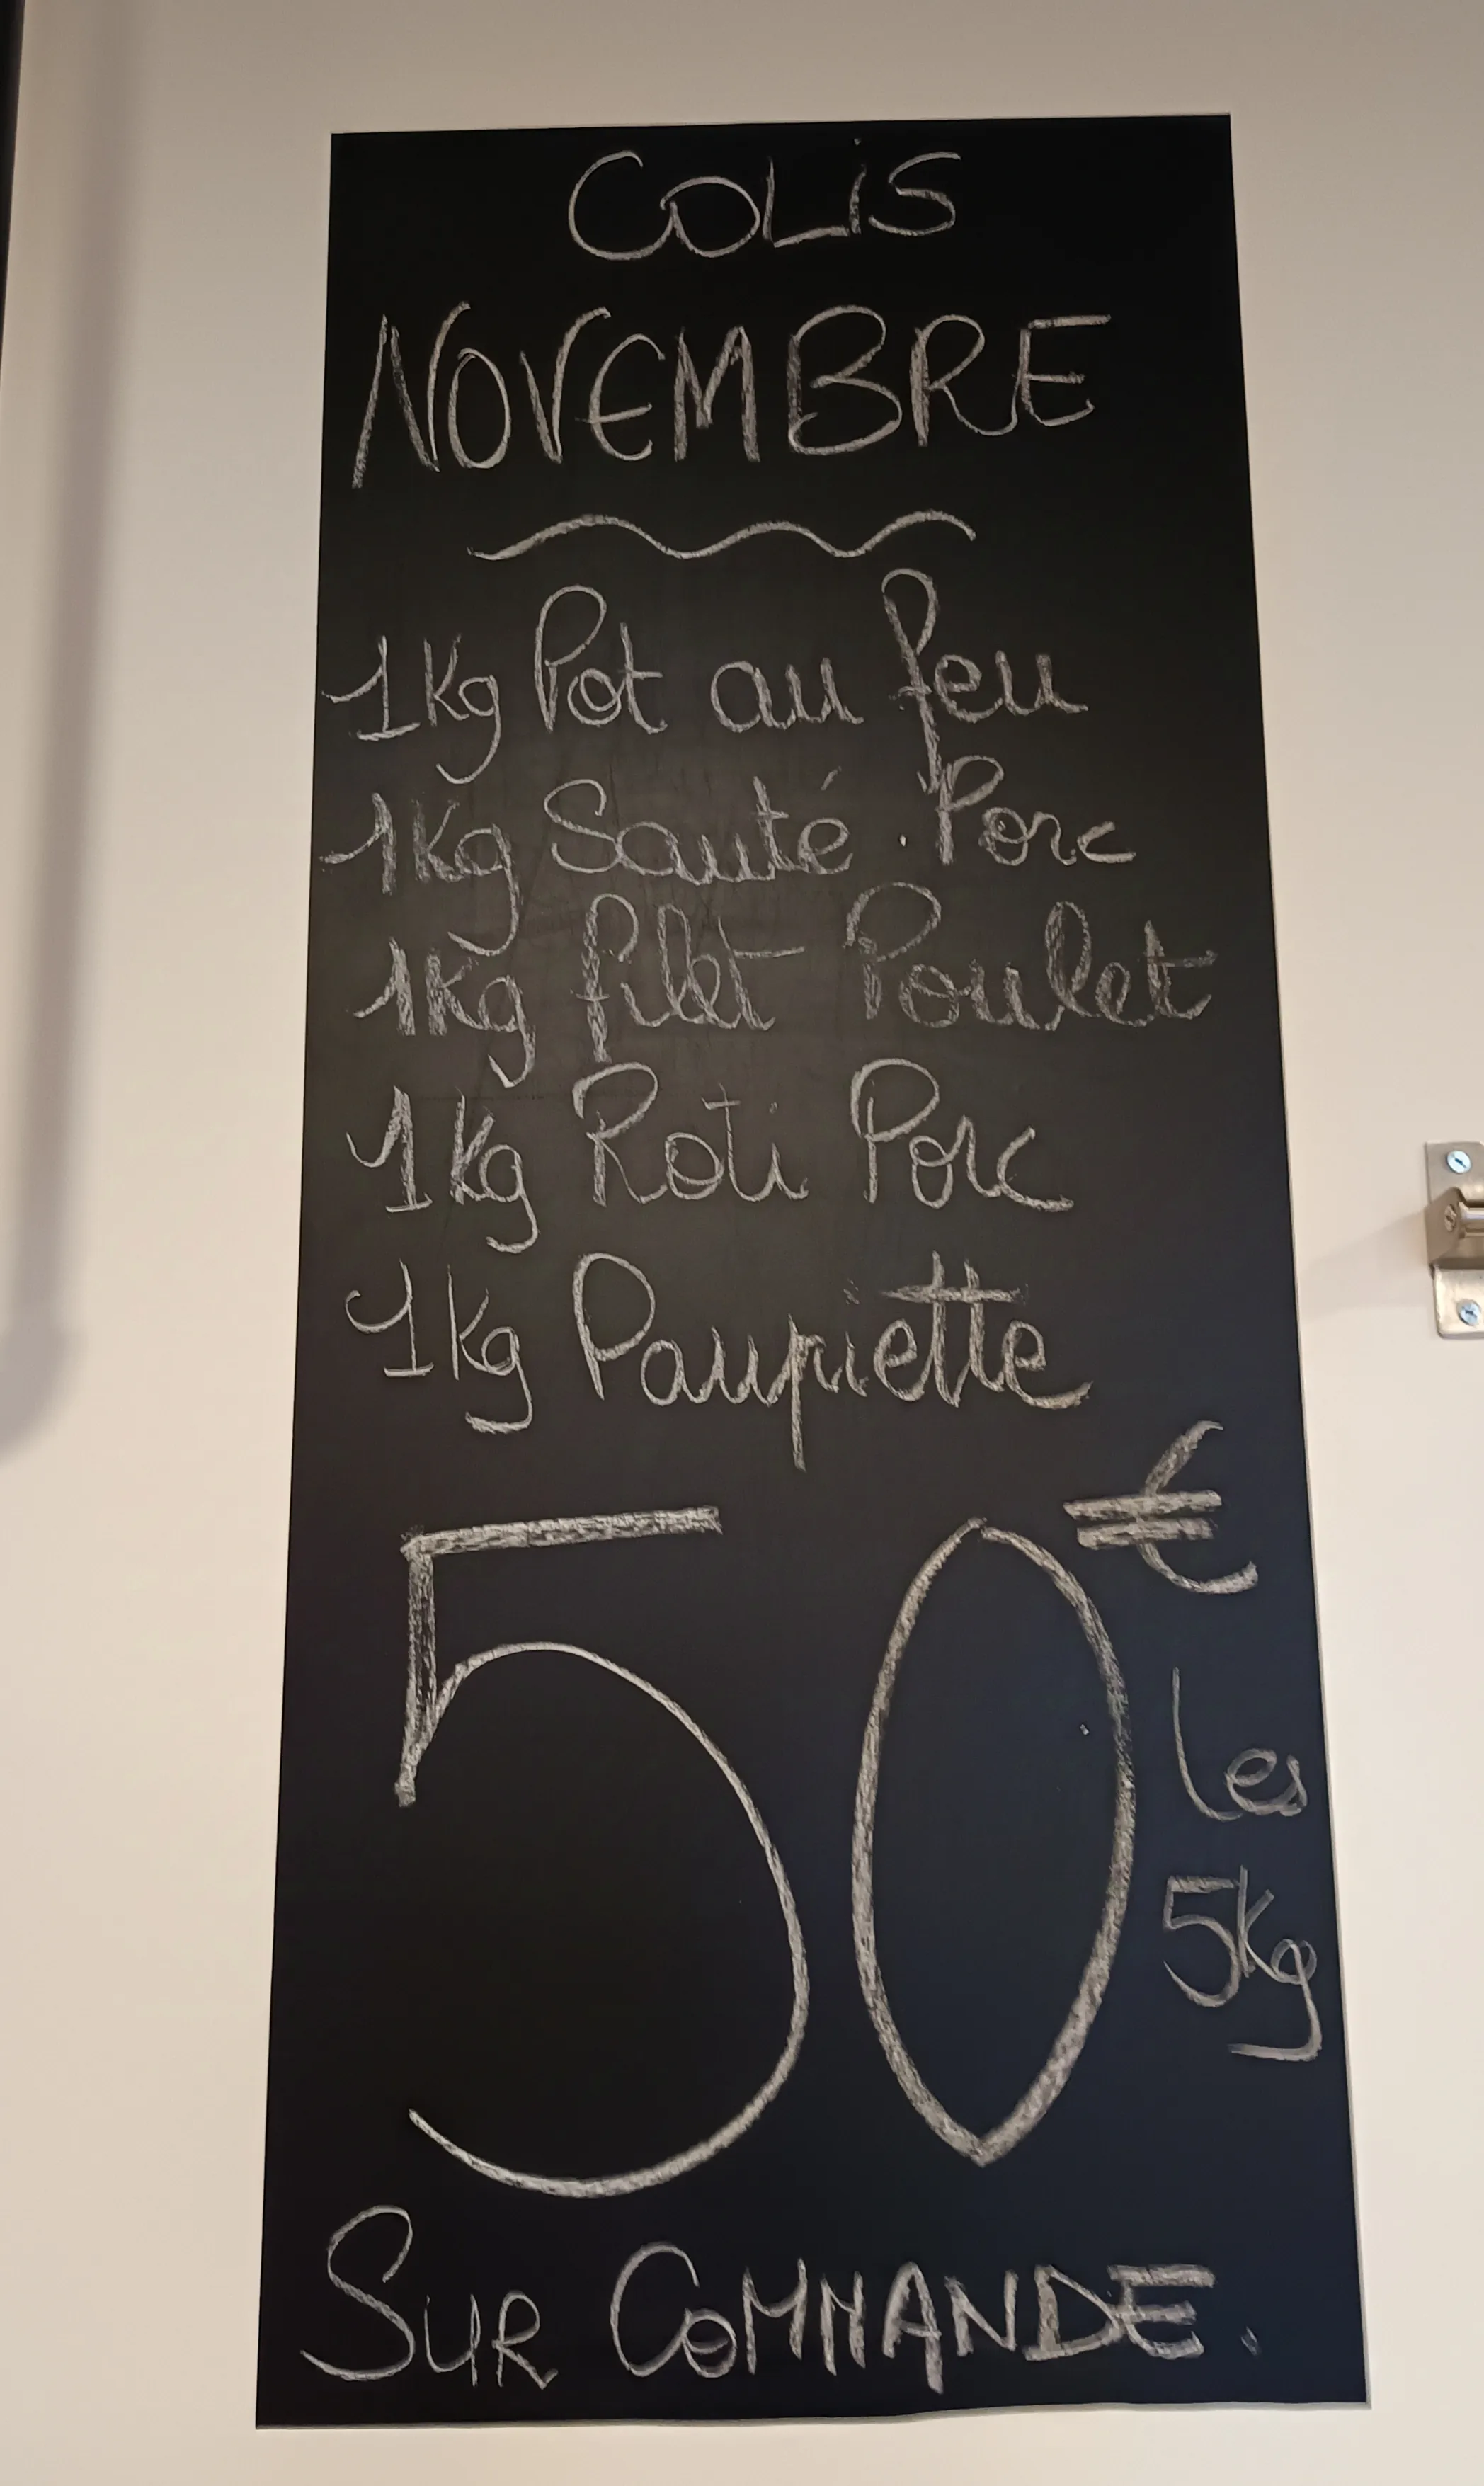 COLiS
NOVEMBRE
1Kg Pot au feu
1Kg Sauté . Porc
1Kg filet Poulet
1Kg Roti Porc
1Kg Paupiette
50€
les
5Kg
SUR COMMANDE.